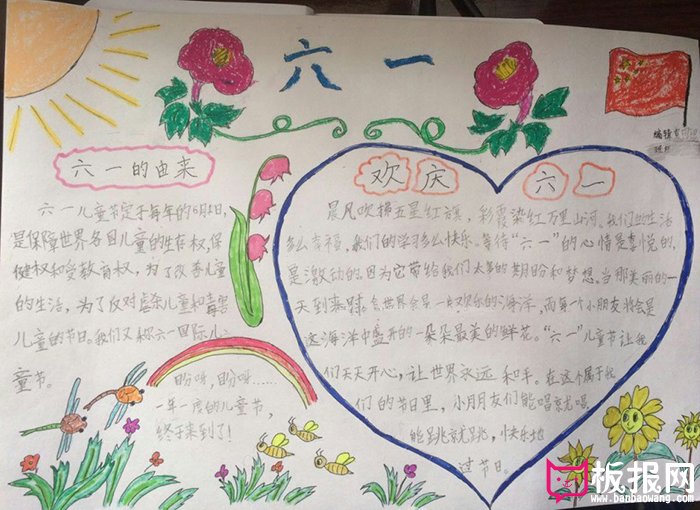 六一
编辑
班级
六一的由来
六一儿童节定于每年的6月1日,
是保障世界各国儿童的生存权、保
健权和受教育权,为了改善儿童
的生活,为了反对虐杀儿童和毒害
儿童的节日。我们又称六一国际儿
童节。
盼呀,盼呀……
一年一度的儿童节,
终于来到了!
欢庆六一
晨风吹拂五星红旗,彩霞染红万里山河。我们的生活
多么幸福,我们的学习多么快乐。等待“六一”的心情是喜悦的,
是激动的。因为它带给我们太多的期盼和梦想。当那美丽的一
天到来时,全世界会是一片欢乐的海洋,而每个小朋友就会是
这海洋中盛开的一朵朵最美的鲜花。“六一”儿童节让我
们天天开心,让世界永远和平。在这个属于我
们的节日里,小朋友们能唱就唱
能跳就跳,快乐地
过节日。
板报网
www.banbaowang.com